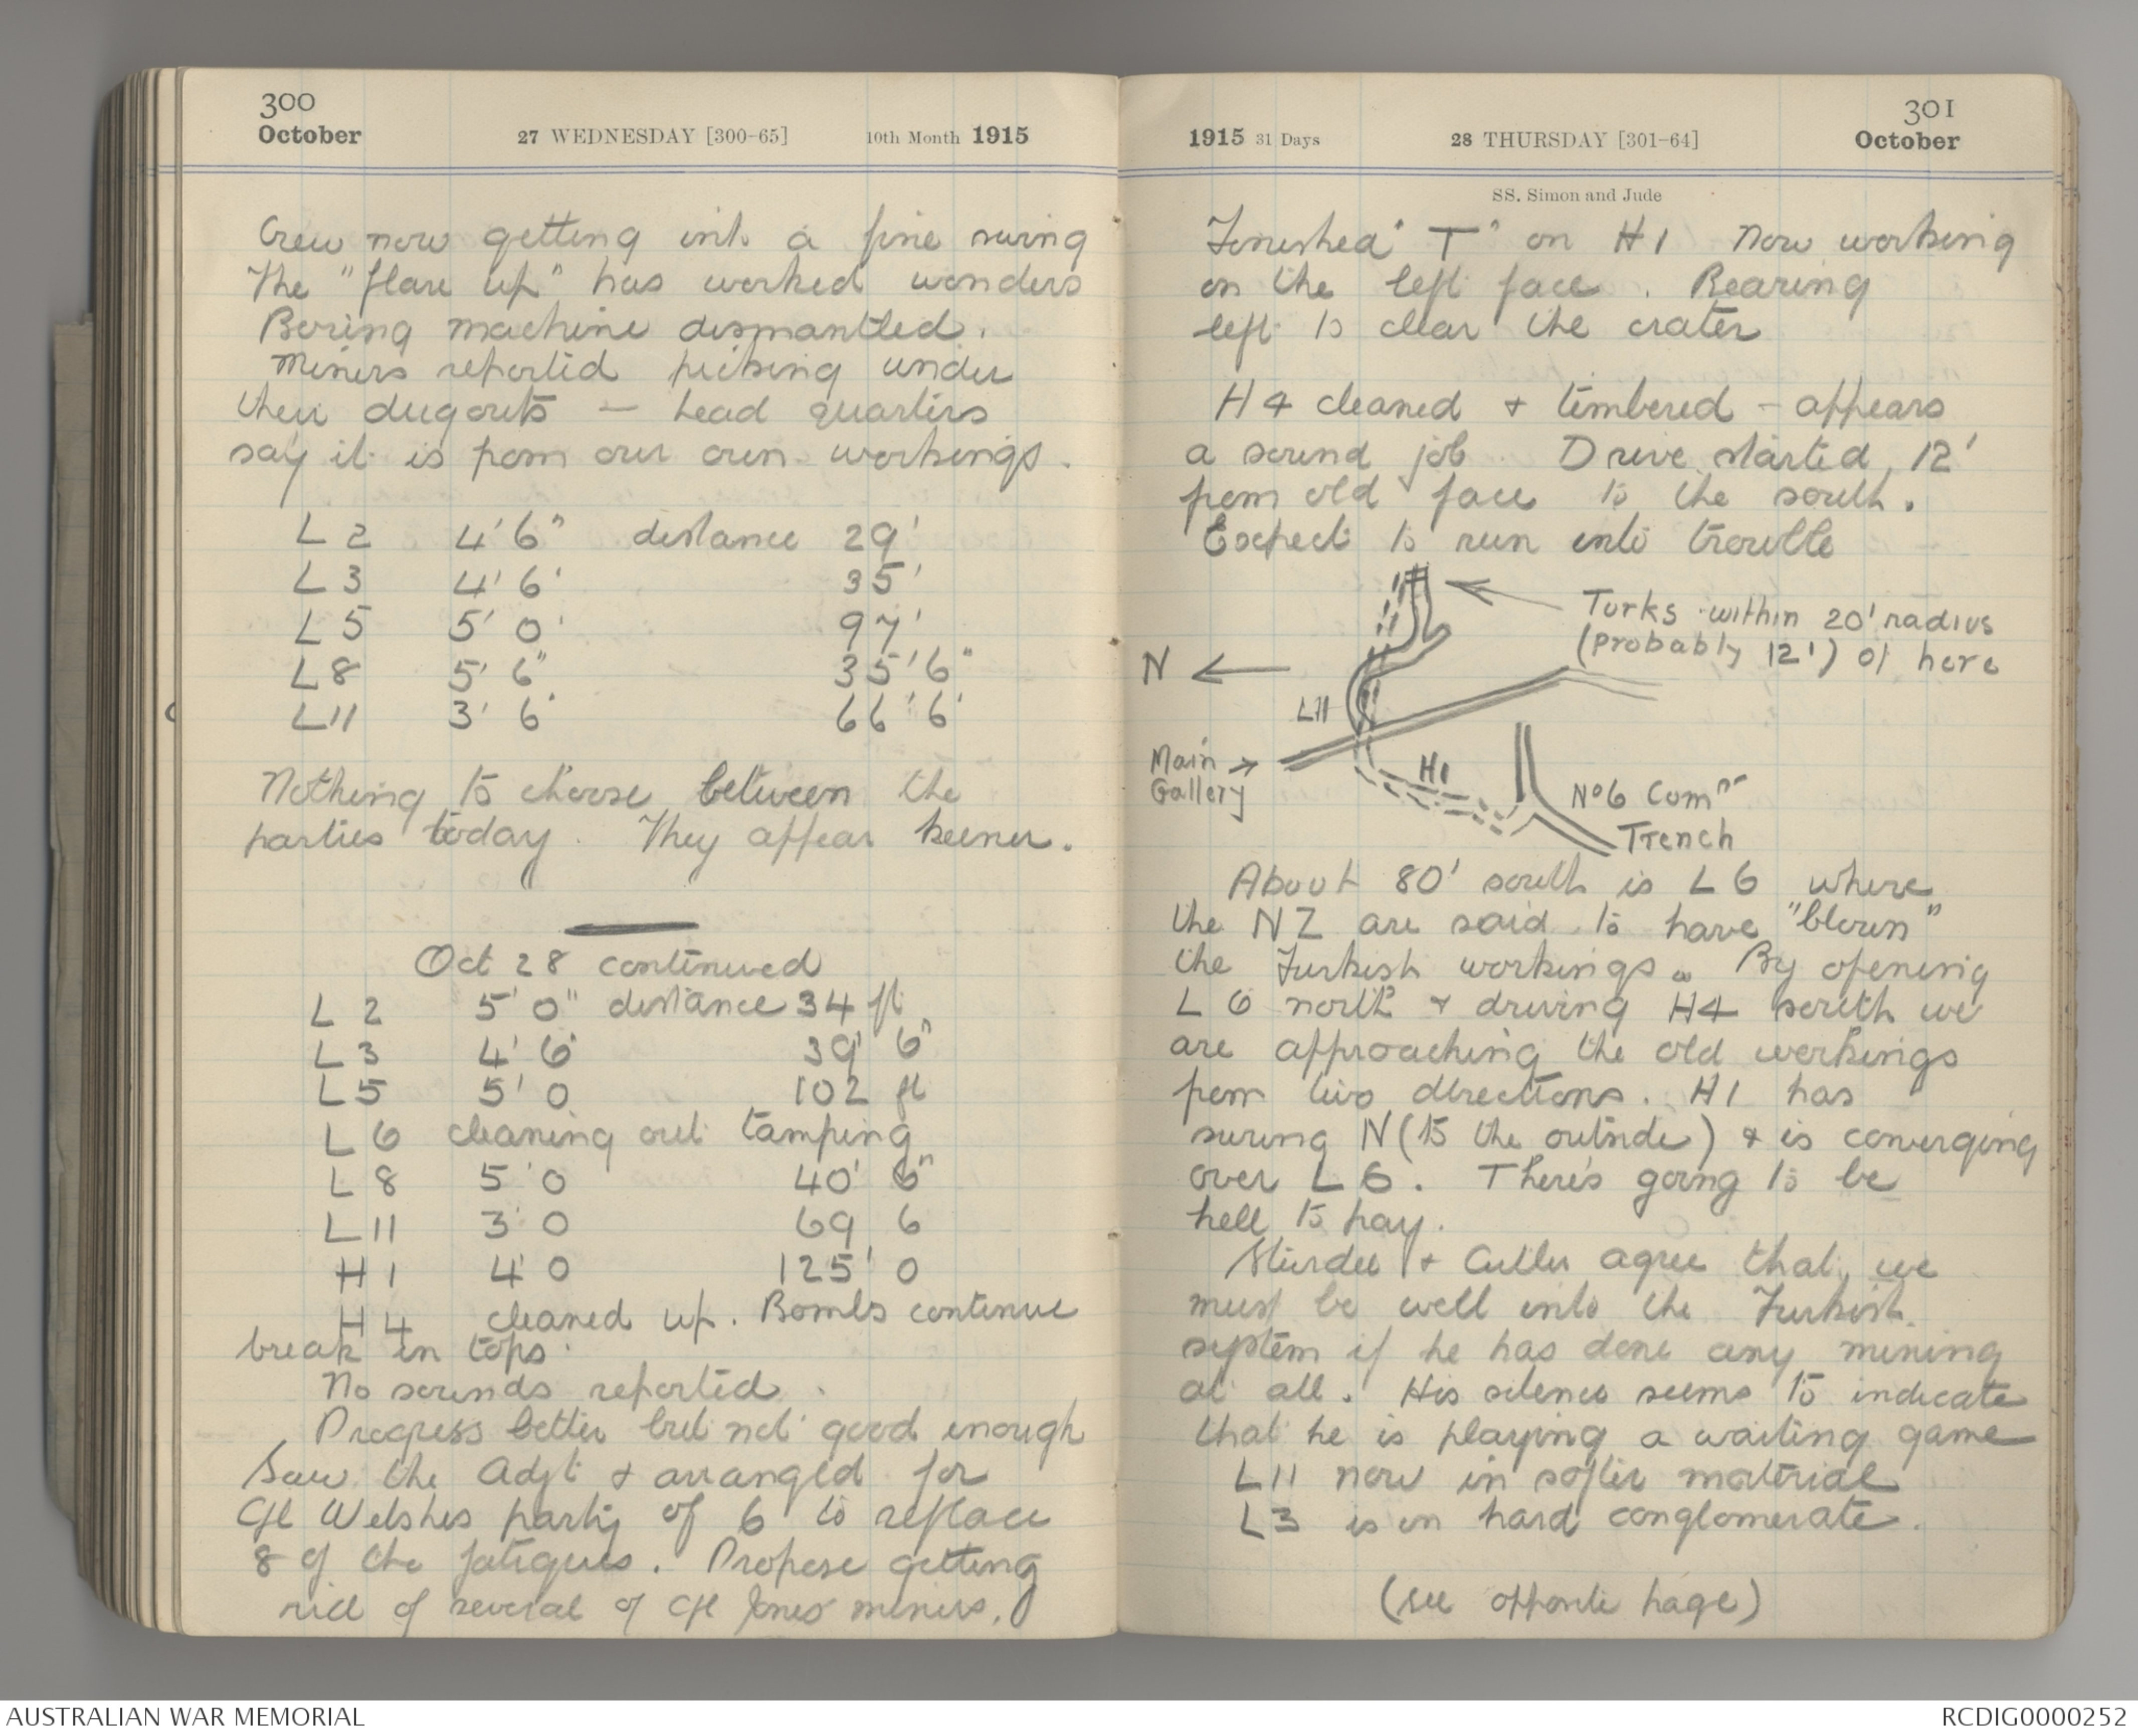 300
October 27 WEDNESDAY [300-65] 10th Month 1915
Crew now getting into a fine swing
The "flare up" has worked wonders
Boring machine dismantled.
Miners reported picking under
their dugouts — head quarters
say it is from our own workings.
L 2 4' 6" distance 29'
L 3 4' 6' 35'
L 5 5' 0' 97'
L 8 5' 6" 35' 6"
L 11 3' 6' 66' 6'
Nothing to choose between the
parties today. They appear keener.
Oct 28 continued
L 2 5' 0" distance 34 ft
L 3 4' 6' 39' 6"
L 5 5' 0 102 ft
L 6 cleaning out tamping
L 8 5' 0 40' 6"
L 11 3' 0 69 6
H 1 4' 0 125' 0
H 4 cleaned up. Bombs continue
break in tops.
No sounds reported.
Progress better but not good enough
Saw the Adjt & arranged for
Cpl Welshes party of 6 to replace
8 of the fatigues. Propose getting
rid of several of Cpl Jones' miners.
301
1915 31 Days 28 THURSDAY [301-64] October
SS. Simon and Jude
Finished "T" on H 1 Now working
on the left face. Bearing
left to clear the crater
H 4 cleaned & timbered – appears
a sound job Drive started, 12'
from old face to the south.
Expect to run into trouble
Turks within 20' radius
(Probably 12') of here
N
L11
Main
Gallery
H1
No6 Comn
Trench
About 80' south is L 6 where
the NZ are said to have "blown"
the Turkish workings. By opening
L 6 north & driving H4 south we
are approaching the old workings
from two directions. H1 has
swung N (to the outside) & is converging
over L 6. There's going to be
hell to pay.
Sturdee & Cutler agree that we
must be well into the Turkish
system if he has done any mining
at all. His silence seems to indicate
that he is playing a waiting game
L 11 now in softer material
L3 is in hard conglomerate.
(see opposite page)
AUSTRALIAN WAR MEMORIAL RCDIG0000252